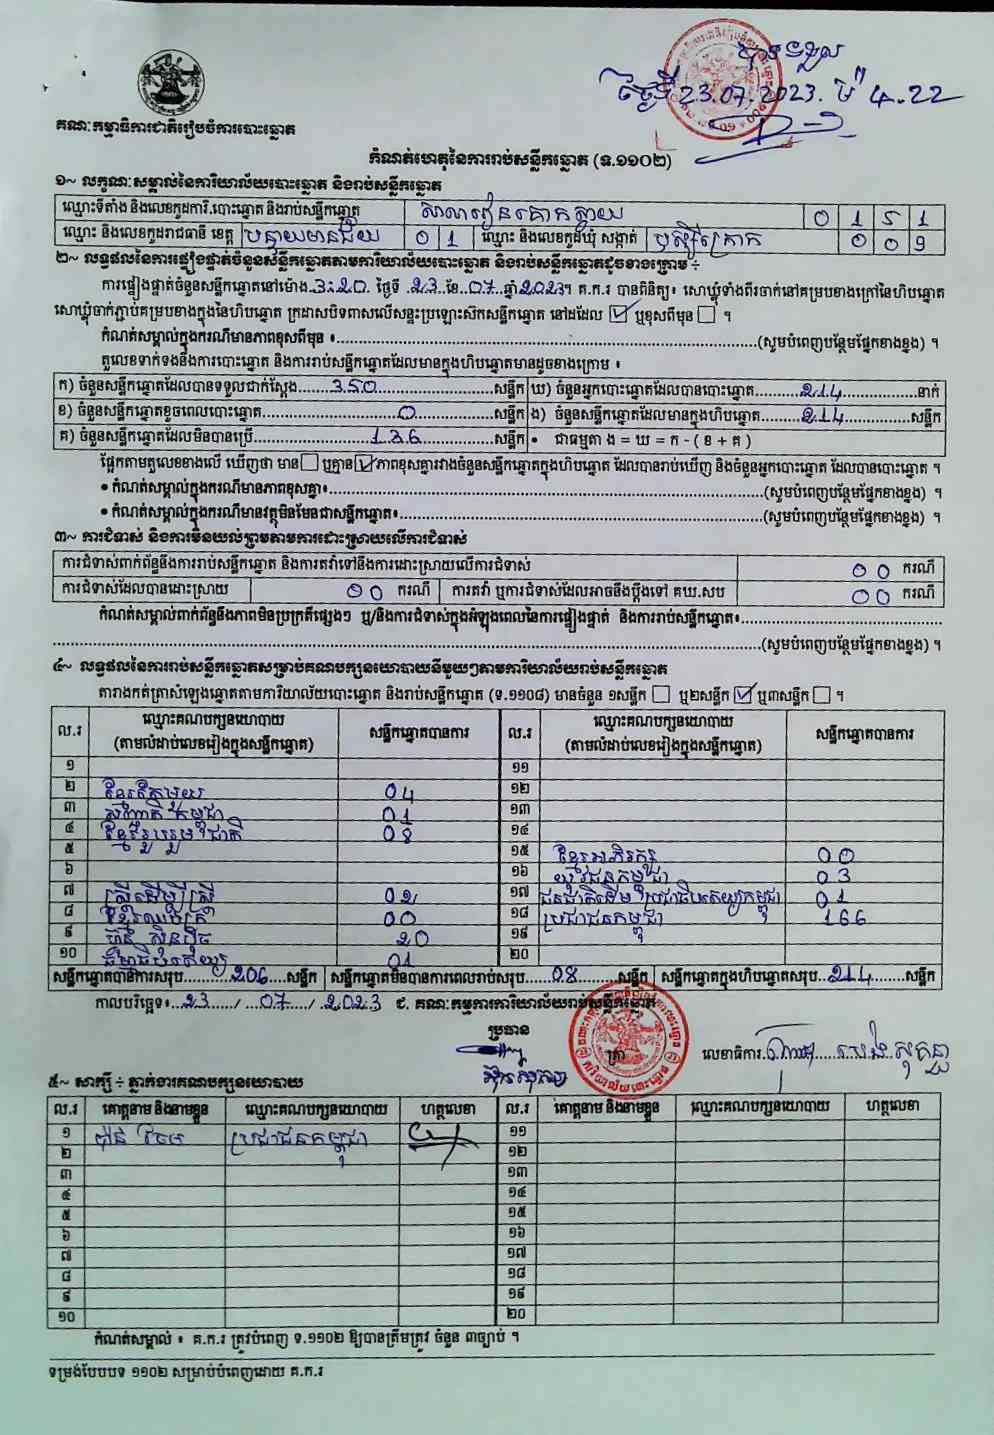 បានទទួល
ថ្ងៃទី 23.07.2023. ម៉ 4.22
គណៈកម្មាធិការជាតិរៀបចំការបោះឆ្នោត
កំណត់ហេតុនៃការរាប់សន្លឹកឆ្នោត (ទ.១១០២)
១~ លក្ខណៈសម្គាល់នៃការិយាល័យបោះឆ្នោត និងរាប់សន្លឹកឆ្នោត
ឈ្មោះទីតាំង និងលេខកូដការិ.បោះឆ្នោត និងរាប់សន្លឹកឆ្នោត សាលារៀនគោកស្វាយ 0 1 5 1
ឈ្មោះ និងលេខកូដរាជធានី ខេត្ត បន្ទាយមានជ័យ 0 1 ឈ្មោះ និងលេខកូដឃុំ សង្កាត់ ឫស្សីក្រោក 0 0 9
២~ លទ្ធផលនៃការផ្ទៀងផ្ទាត់ចំនួនសន្លឹកឆ្នោតតាមការិយាល័យបោះឆ្នោត និងរាប់សន្លឹកឆ្នោតដូចខាងក្រោម ÷
ការផ្ទៀងផ្ទាត់ចំនួនសន្លឹកឆ្នោតនៅម៉ោង 3:20 ថ្ងៃទី 23 ខែ 07 ឆ្នាំ 2023។ គ.ក.រ បានពិនិត្យ៖ សោឃ្លុំទាំងពីរចាក់នៅគម្របខាងក្រៅនៃហិបឆ្នោត
សោឃ្លុំចាក់ភ្ជាប់គម្របខាងក្នុងនៃហិបឆ្នោត ក្រដាសបិទពាសលើសន្ទះប្រឡោះស៊កសន្លឹកឆ្នោត នៅដដែល ☑ ឬខុសពីមុន ☐ ។
កំណត់សម្គាល់ក្នុងករណីមានភាពខុសពីមុន ៖ (សូមបំពេញបន្ថែមផ្នែកខាងខ្នង) ។
តួលេខទាក់ទងនឹងការបោះឆ្នោត និងការរាប់សន្លឹកឆ្នោតដែលមានក្នុងហិបឆ្នោតមានដូចខាងក្រោម ៖
ក) ចំនួនសន្លឹកឆ្នោតដែលបានទទួលជាក់ស្តែង 350 សន្លឹក ឃ) ចំនួនអ្នកបោះឆ្នោតដែលបានបោះឆ្នោត 214 នាក់
ខ) ចំនួនសន្លឹកឆ្នោតខូចពេលបោះឆ្នោត 0 សន្លឹក ង) ចំនួនសន្លឹកឆ្នោតដែលមានក្នុងហិបឆ្នោត 214 សន្លឹក
គ) ចំនួនសន្លឹកឆ្នោតដែលមិនបានប្រើ 136 សន្លឹក • ជាធម្មតា ង = ឃ = ក - ( ខ + គ )
ផ្អែកតាមតួលេខខាងលើ ឃើញថា មាន ☐ ឬគ្មាន ☑ ភាពខុសគ្នារវាងចំនួនសន្លឹកឆ្នោតក្នុងហិបឆ្នោត ដែលបានរាប់ឃើញ និងចំនួនអ្នកបោះឆ្នោត ដែលបានបោះឆ្នោត ។
• កំណត់សម្គាល់ក្នុងករណីមានភាពខុសគ្នា៖ (សូមបំពេញបន្ថែមផ្នែកខាងខ្នង) ។
• កំណត់សម្គាល់ក្នុងករណីមានវត្ថុមិនមែនជាសន្លឹកឆ្នោត៖ (សូមបំពេញបន្ថែមផ្នែកខាងខ្នង) ។
៣~ ការជំទាស់ និងការមិនយល់ព្រមតាមការដោះស្រាយលើការជំទាស់
ការជំទាស់ពាក់ព័ន្ធនឹងការរាប់សន្លឹកឆ្នោត និងការតវ៉ាទៅនឹងការដោះស្រាយលើការជំទាស់ 00 ករណី
ការជំទាស់ដែលបានដោះស្រាយ 00 ករណី ការតវ៉ា ឬការជំទាស់ដែលអាចនឹងប្តឹងទៅ គឃ.សប 00 ករណី
កំណត់សម្គាល់ពាក់ព័ន្ធនឹងភាពមិនប្រក្រតីផ្សេងៗ ឬ/និងការជំទាស់ក្នុងអំឡុងពេលនៃការផ្ទៀងផ្ទាត់ និងការរាប់សន្លឹកឆ្នោត៖
(សូមបំពេញបន្ថែមផ្នែកខាងខ្នង) ។
៤~ លទ្ធផលនៃការរាប់សន្លឹកឆ្នោតសម្រាប់គណបក្សនយោបាយនីមួយៗតាមការិយាល័យរាប់សន្លឹកឆ្នោត
តារាងកត់ត្រាសំឡេងឆ្នោតតាមការិយាល័យបោះឆ្នោត និងរាប់សន្លឹកឆ្នោត (ទ.១១០៨) មានចំនួន ១សន្លឹក ☐ ឬ២សន្លឹក ☑ ឬ៣សន្លឹក ☐ ។
ល.រ ឈ្មោះគណបក្សនយោបាយ សន្លឹកឆ្នោតបានការ ល.រ ឈ្មោះគណបក្សនយោបាយ សន្លឹកឆ្នោតបានការ
(តាមលំដាប់លេខរៀងក្នុងសន្លឹកឆ្នោត) (តាមលំដាប់លេខរៀងក្នុងសន្លឹកឆ្នោត)
១ ១១
២ ខ្មែរតែមួយ 04 ១២
៣ សញ្ជាតិកម្ពុជា 01 ១៣
៤ ខ្មែររួបរួមជាតិ 08 ១៤
៥ ១៥ ខ្មែរអភិរក្ស 00
៦ ១៦ យុវជនកម្ពុជា 03
៧ ស្រីដើម្បីស្រី 02 ១៧ ជនជាតិដើមប្រជាធិបតេយ្យកម្ពុជា 01
៨ 00 ១៨ ប្រជាជនកម្ពុជា 166
៩ ហ៊្វុនស៊ិនប៉ិច 20 ១៩
១០ ធម្មាធិបតេយ្យ 01 ២០
សន្លឹកឆ្នោតបានការសរុប 206 សន្លឹក សន្លឹកឆ្នោតមិនបានការពេលរាប់សរុប 08 សន្លឹក សន្លឹកឆ្នោតក្នុងហិបឆ្នោតសរុប 214 សន្លឹក
កាលបរិច្ឆេទ៖ 23 / 07 / 2023 ជ. គណៈកម្មការការិយាល័យរាប់សន្លឹកឆ្នោត
ប្រធាន
ត្រា លេខាធិការ
៥~ សាក្សី ÷ ភ្នាក់ងារគណបក្សនយោបាយ
ល.រ គោត្តនាម និងនាមខ្លួន ឈ្មោះគណបក្សនយោបាយ ហត្ថលេខា ល.រ គោត្តនាម និងនាមខ្លួន ឈ្មោះគណបក្សនយោបាយ ហត្ថលេខា
១ ប្រជាជនកម្ពុជា ១១
២ ១២
៣ ១៣
៤ ១៤
៥ ១៥
៦ ១៦
៧ ១៧
៨ ១៨
៩ ១៩
១០ ២០
កំណត់សម្គាល់ ៖ គ.ក.រ ត្រូវបំពេញ ទ.១១០២ ឱ្យបានត្រឹមត្រូវ ចំនួន ៣ច្បាប់ ។
ទម្រង់បែបបទ ១១០២ សម្រាប់បំពេញដោយ គ.ក.រ